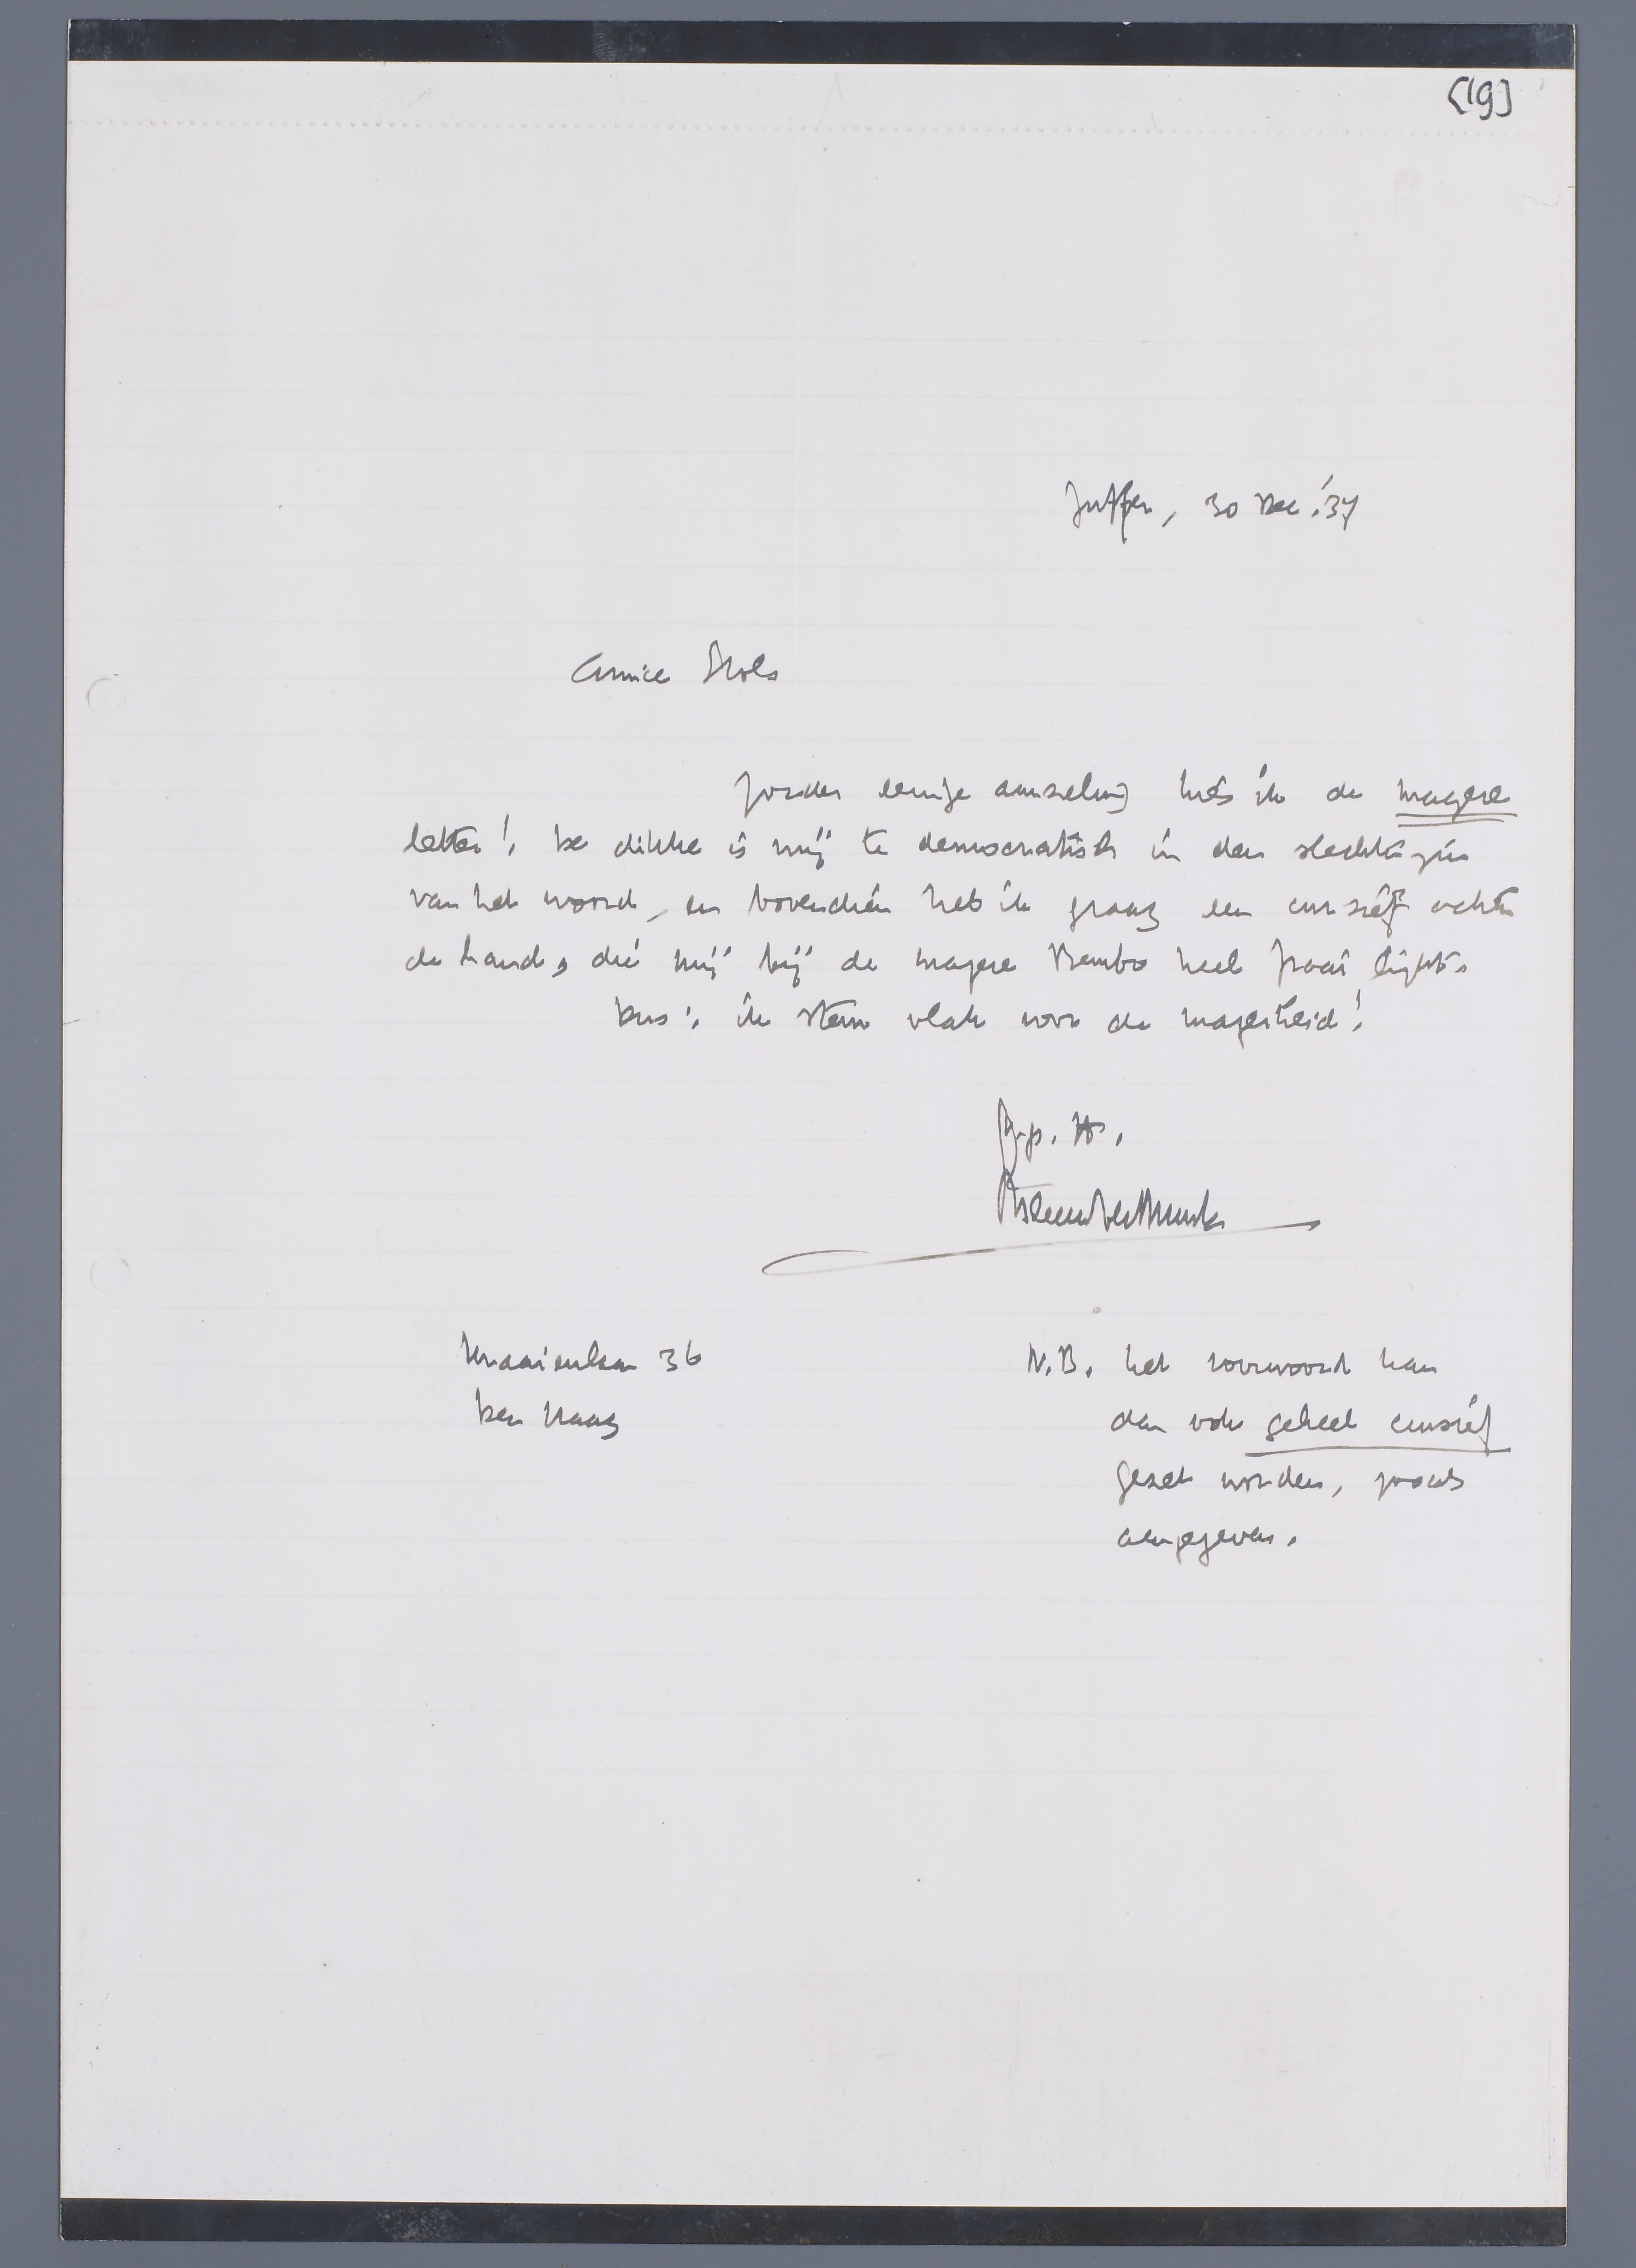 [19]
Zutfen, 30 Dec. '37
Amice Stols
Zonder eenige aarzeling kies ik de magere
letter! De dikke is mij te democratisch in den slechten zin
van het woord, en bovendien heb ik graag een cursief achter
de hand, die mij bij de magere Bembo heel fraai lijkt.
Dus: ik stem vlak voor de magerheid!
Gr. H.,
Kraaienlaan 36
Den Haag
N.B. het voorwoord kan
dan ook geheel cursief
gezet worden, zooals
aangegeven.